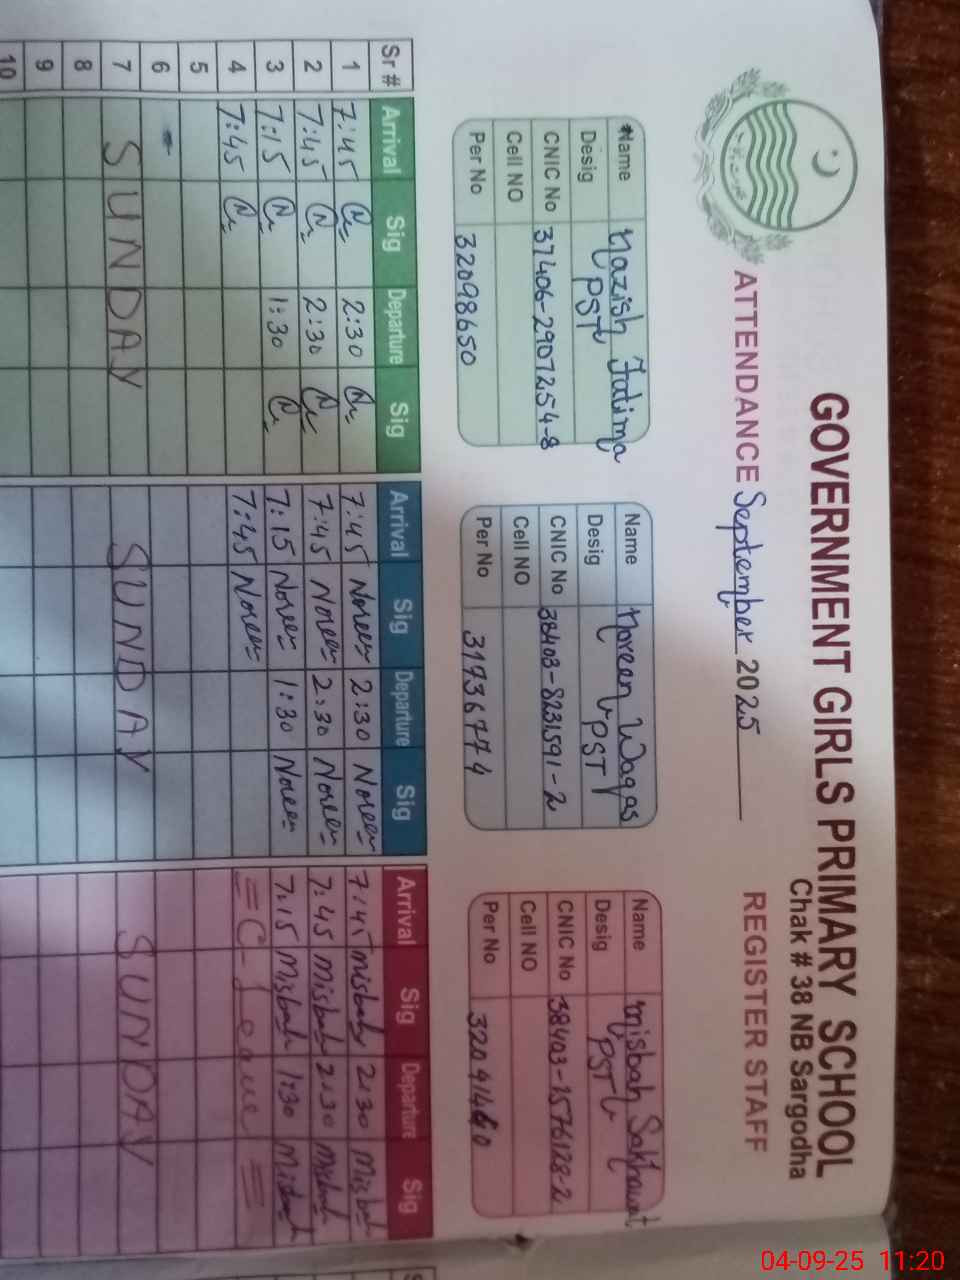 GOVERNMENT GIRLS PRIMARY SCHOOL
Chak # 38 NB Sargodha
ATTENDANCE September 2025 REGISTER STAFF
Name Nazish Fatima
Desig PST
CNIC No 37406-2907254-8
Cell NO
Per No 32098650
Name Noreen Waqas
Desig PST
CNIC No 38403-8231591-2
Cell NO
Per No 31936774
Name Misbah Sakhawat
Desig PST
CNIC No 38403-1576128-2
Cell NO
Per No
Sr # Arrival Sig Departure Sig Arrival Sig Departure Sig Arrival Sig Departure Sig
1 7:45 2:30 7:45 Noreen 2:30 Noreen 7:45 Misbah 2:30 Misbah
2 7:45 2:30 7:45 Noreen 2:30 Noreen 7:45 Misbah 2:30 Misbah
3 7:15 1:30 7:15 Noreen 1:30 Noreen 7:15 Misbah 1:30 Misbah
4 7:45 7:45 Noreen =C-Leave=
5
6
7 SUNDAY SUNDAY SUNDAY
8
9
10
04-09-25 11:20